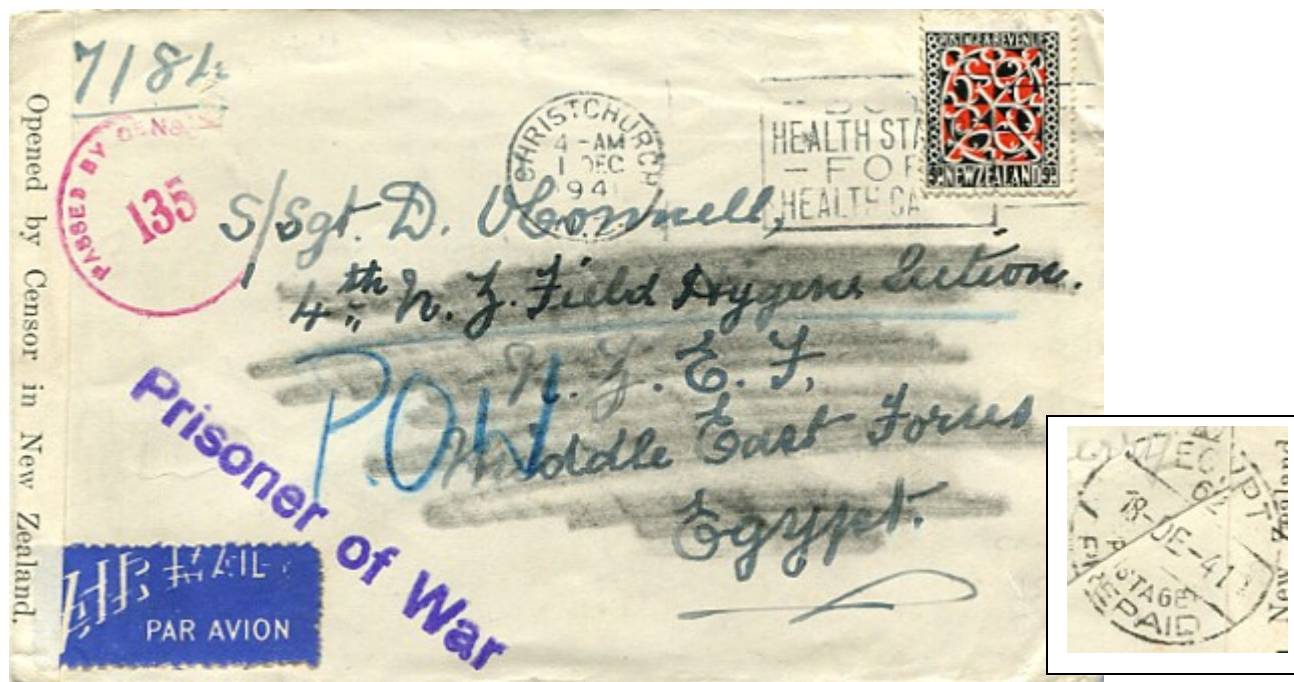 7184
Opened by Censor in New Zealand.
PASSED BY CENSOR
135
CHRISTCHURCH
4 - AM
1 DEC
1941
HEALTH STA
- FOR
HEALTH CA
POSTAGE & REVENUE
9D NEW ZEALAND 9D
S/Sgt. D. O'Connell,
4th N. Z. Field Hygene Section.
N. Z. E. F,
Middle East Forces
Egypt.
P.O.W
Prisoner of War
AIR MAIL
PAR AVION
EGYPT
62
18-DE-41
POSTAGE
PREPAID
New Zealand